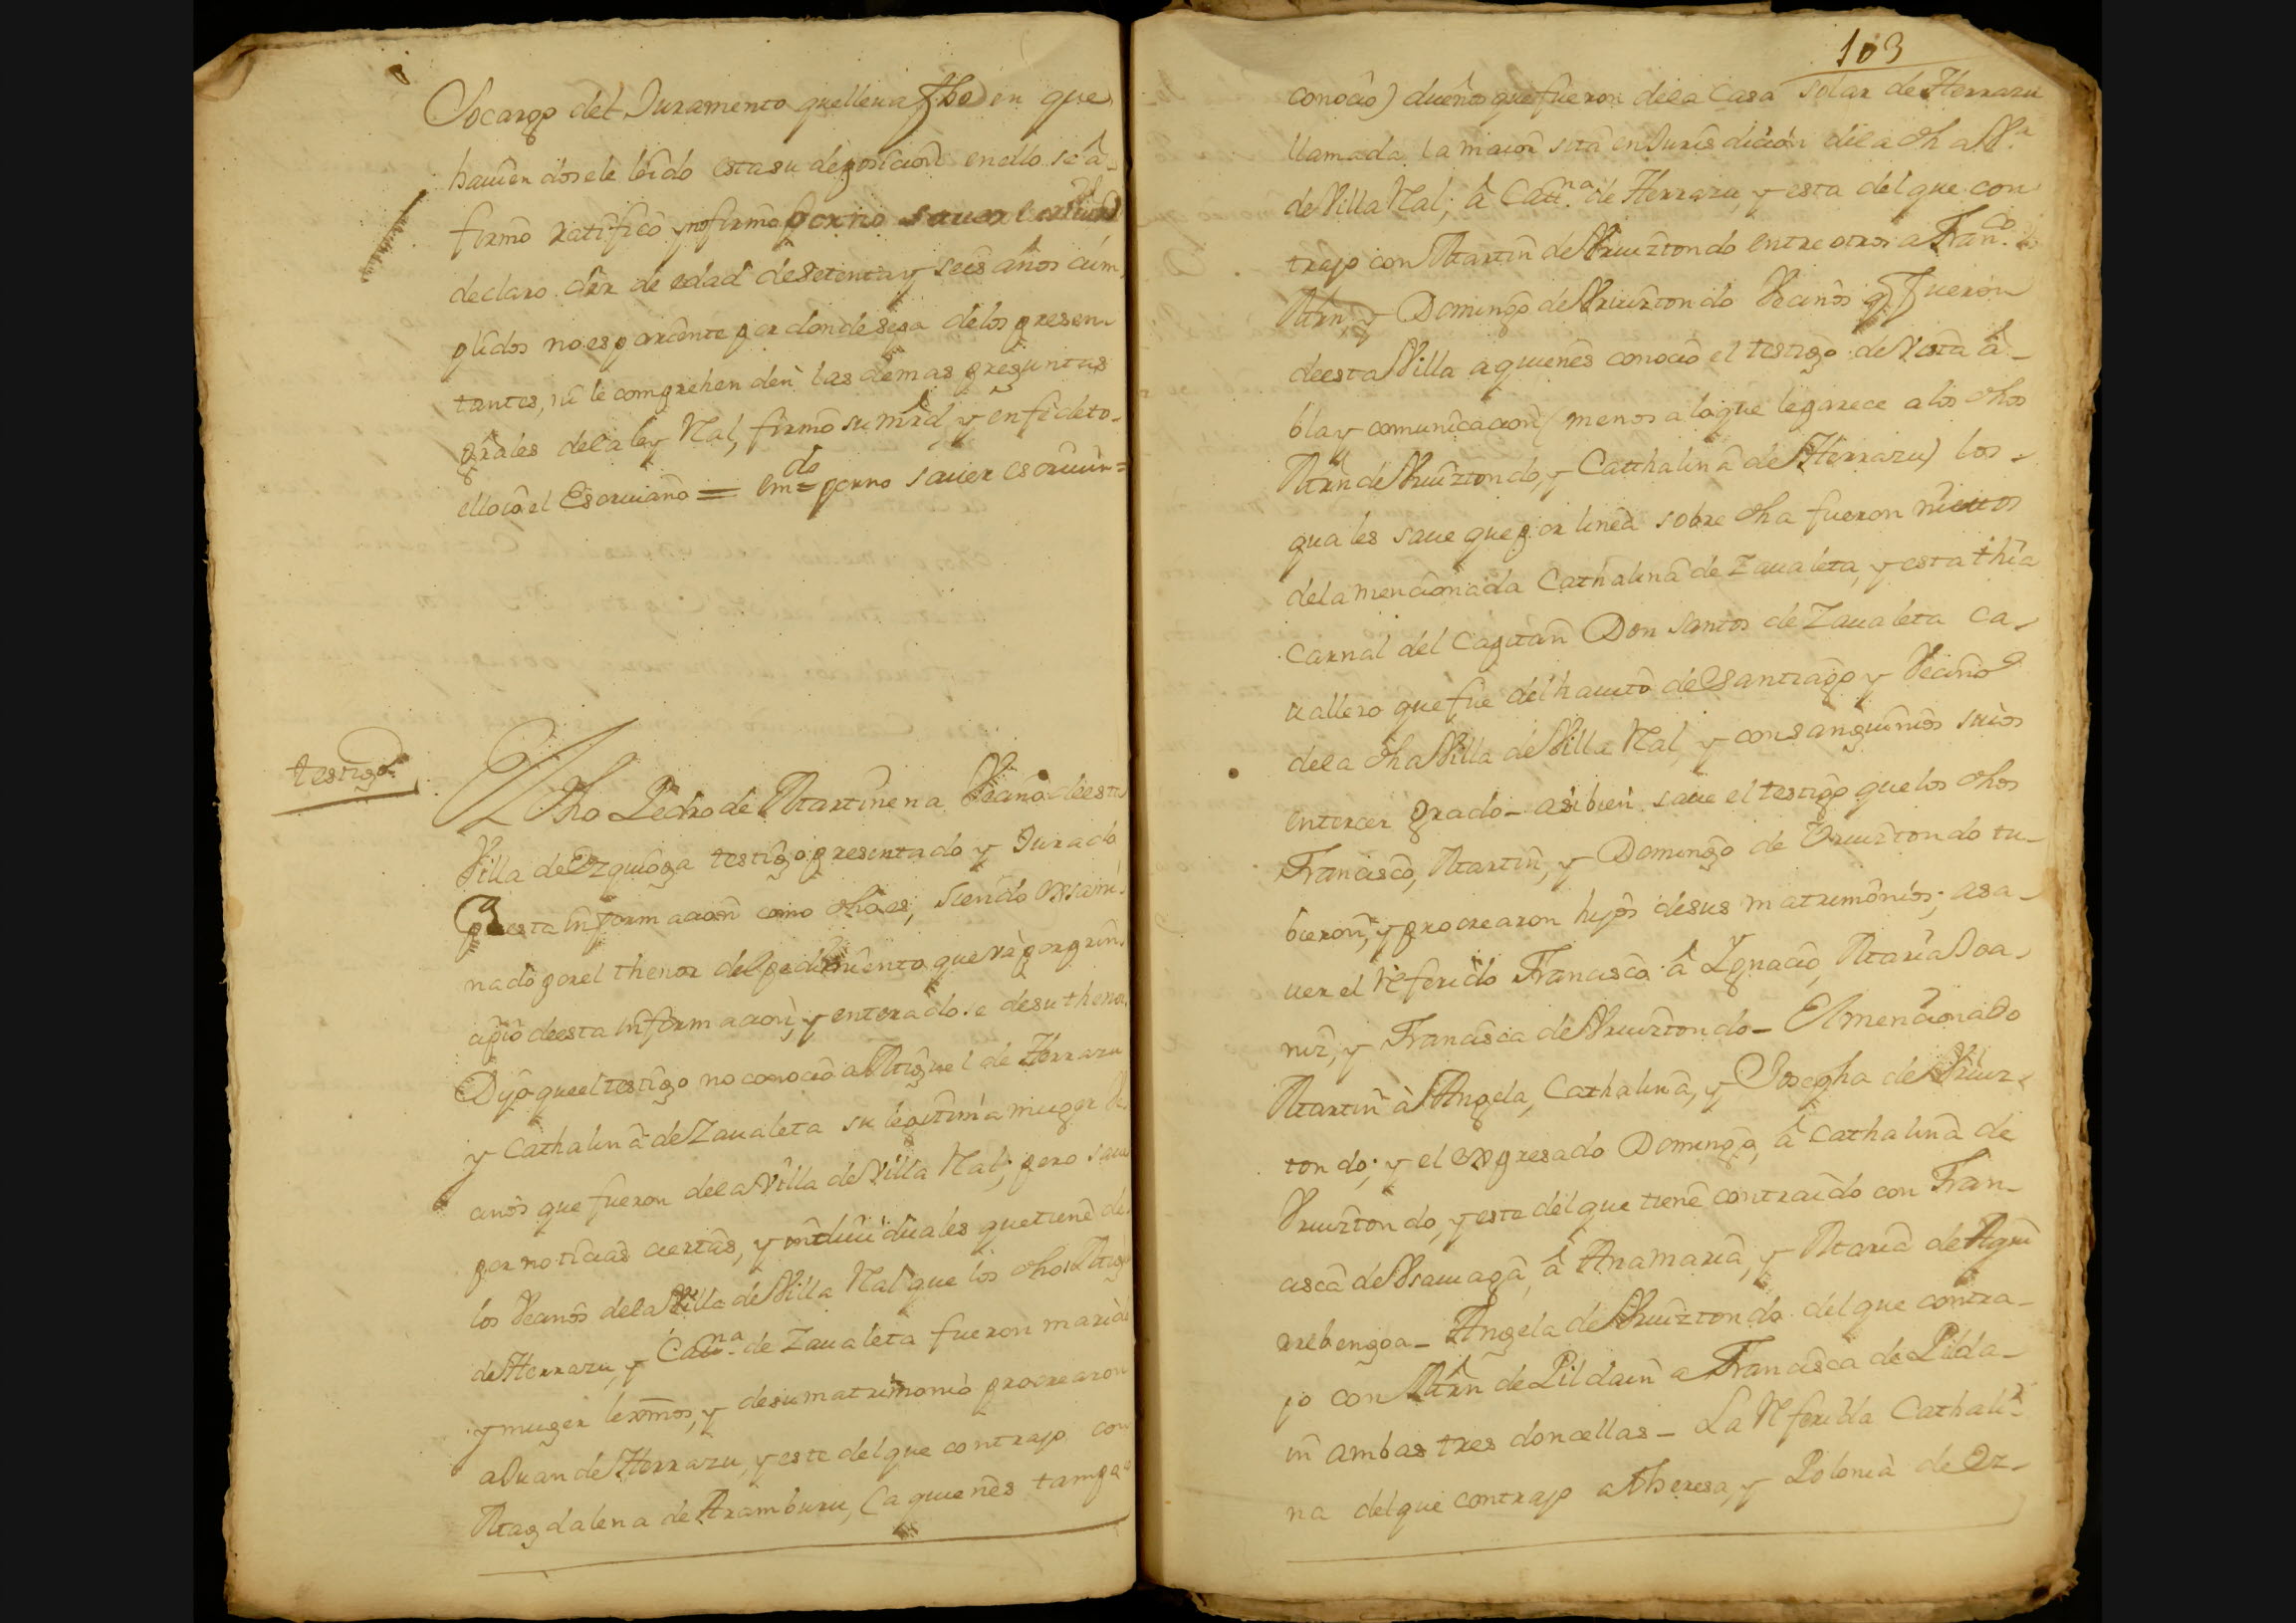 Socargo del Juramento quelleua fho en que
hauiendosele leido estasu deposicion enello se â
firmô ratificô ynofirmô porno sauer escriuir
declaro ser de edad desetenta y seis años cum
plidos noes pariente por dondesepa delos presen
tantes, ni le comprehenden las demas preguntas
grãles dela ley Ral, firmô su mrd, y enfedeto
ello iô el Escriuano = em.do = porno sauer escriuir =
testigo
El dho Pedro de Martinena Vecino deesta
Villa deEzquioga testigo presentado y Jurado
paesta informacion como dhoes, siendo exsami
nado porel thenor delpedimiento que và porprin
cipio deesta informacion, y enteradose desu thenor
Dijo queeltestigo noconocio aMiguel de Herrazu
y Cathalina deZaualeta su legitima muger Ve
cinos que fueron dela Villa de Villa Ral; pero saue
por noticias ciertas, y indiuiduales quetiene de
los Vecinos dela Villa deVilla Ral que los dhos Migl
deHerrazu, y Cathna de Zaualeta fueron marido
y muger lexmos, y desumatrimonio procrearon
aJuan deHerrazu, y este delque contrajo con
Magdalena de Aramburu, (a quienes tampo
103
conocio) dueños quefueron dela Casa solar de Herrazu
llamada la maior sita enJurisdicion dela dha Va
deVilla Ral; â Cathna de Herrazu, y esta delque con
trajo con Martin deVruiztondo entre otros a Franco
Mrn, y Domingo deVruiztondo Vecinos q fueron
deesta Villa aquienes conocio el testigo deVista â
bla y comunicacion (menos aloque leparece alos dhos
Mrn deVruiztondo, y Catthalina deHerrazu) los
quales saue quepor linea sobre dha fueron nietos
dela mencionada Cathalina de Zaualeta, y esta thia
Carnal del Capitan Don Santos de Zaualeta Ca
uallero quefue delhauito deSantiago y Vecino
dela dha Villa deVilla Ral, y consanguineos suios
entercer grado - asibien saue el testigo quelos dhos
Francisco, Martin, y Domingo de Vruiztondo tu
bieron, y procrearon hijos desus matrimonios; asa
uer el Referido Francisco â Ygnacio, Maria Joa
niz, y Francisca deVruiztondo - El mencionado
Martin â Angela, Cathalina, y Josepha deVruiz
tondo; y el expresado Domingo, â Cathalina de
Vruiztondo, y este delque tiene contraido con Fran
cisca deVsauiaga, â Anamaria, y Maria deAgui
rrebengoa - Angela deVruiztondo delque contra
jo con Mrn de Pildain a Francisca de Pilda
in ambas tres doncellas - La Referida Cathali
na delque contrajo aTheresa, y Polonia de Oz